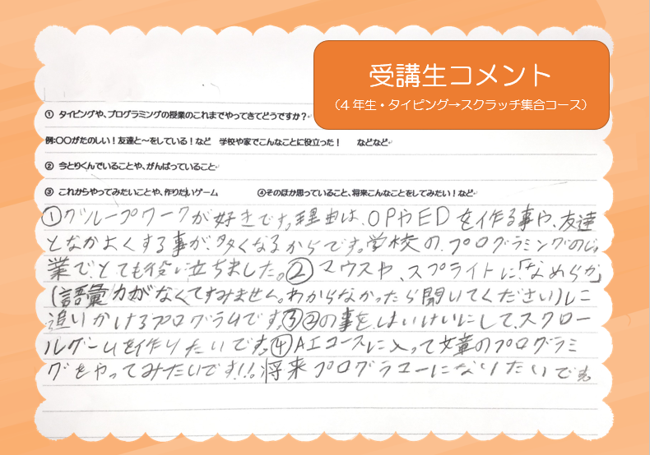 受講生コメント
（4年生・タイピング→スクラッチ集合コース）
① タイピングや、プログラミングの授業のこれまでやってきてどうですか？
例:〇〇がたのしい！友達と～をしている！など　学校や家でこんなことに役立った！　などなど
② 今とりくんでいることや、がんばっていること
③ これからやってみたいことや、作りたいゲーム　④そのほか思っていること、将来こんなことをしてみたい！など
①グループワークが好きです。理由は、OPやEDを作る事や、友達
となかよくする事が、多くなるからです。学校の、プログラミングのじゅ
業で、とても役に立ちました。②マウスや、スプライトに「なめらか」
(語彙力がなくてすみません。わからなかったら聞いてください)に
追いかけるプログラムです。③②の事を、はいけいにして、スクロー
ルゲームを作りたいです。④AIコースに入って文章のプログラミ
グをやってみたいです!!将来プログラマーになりたいです。